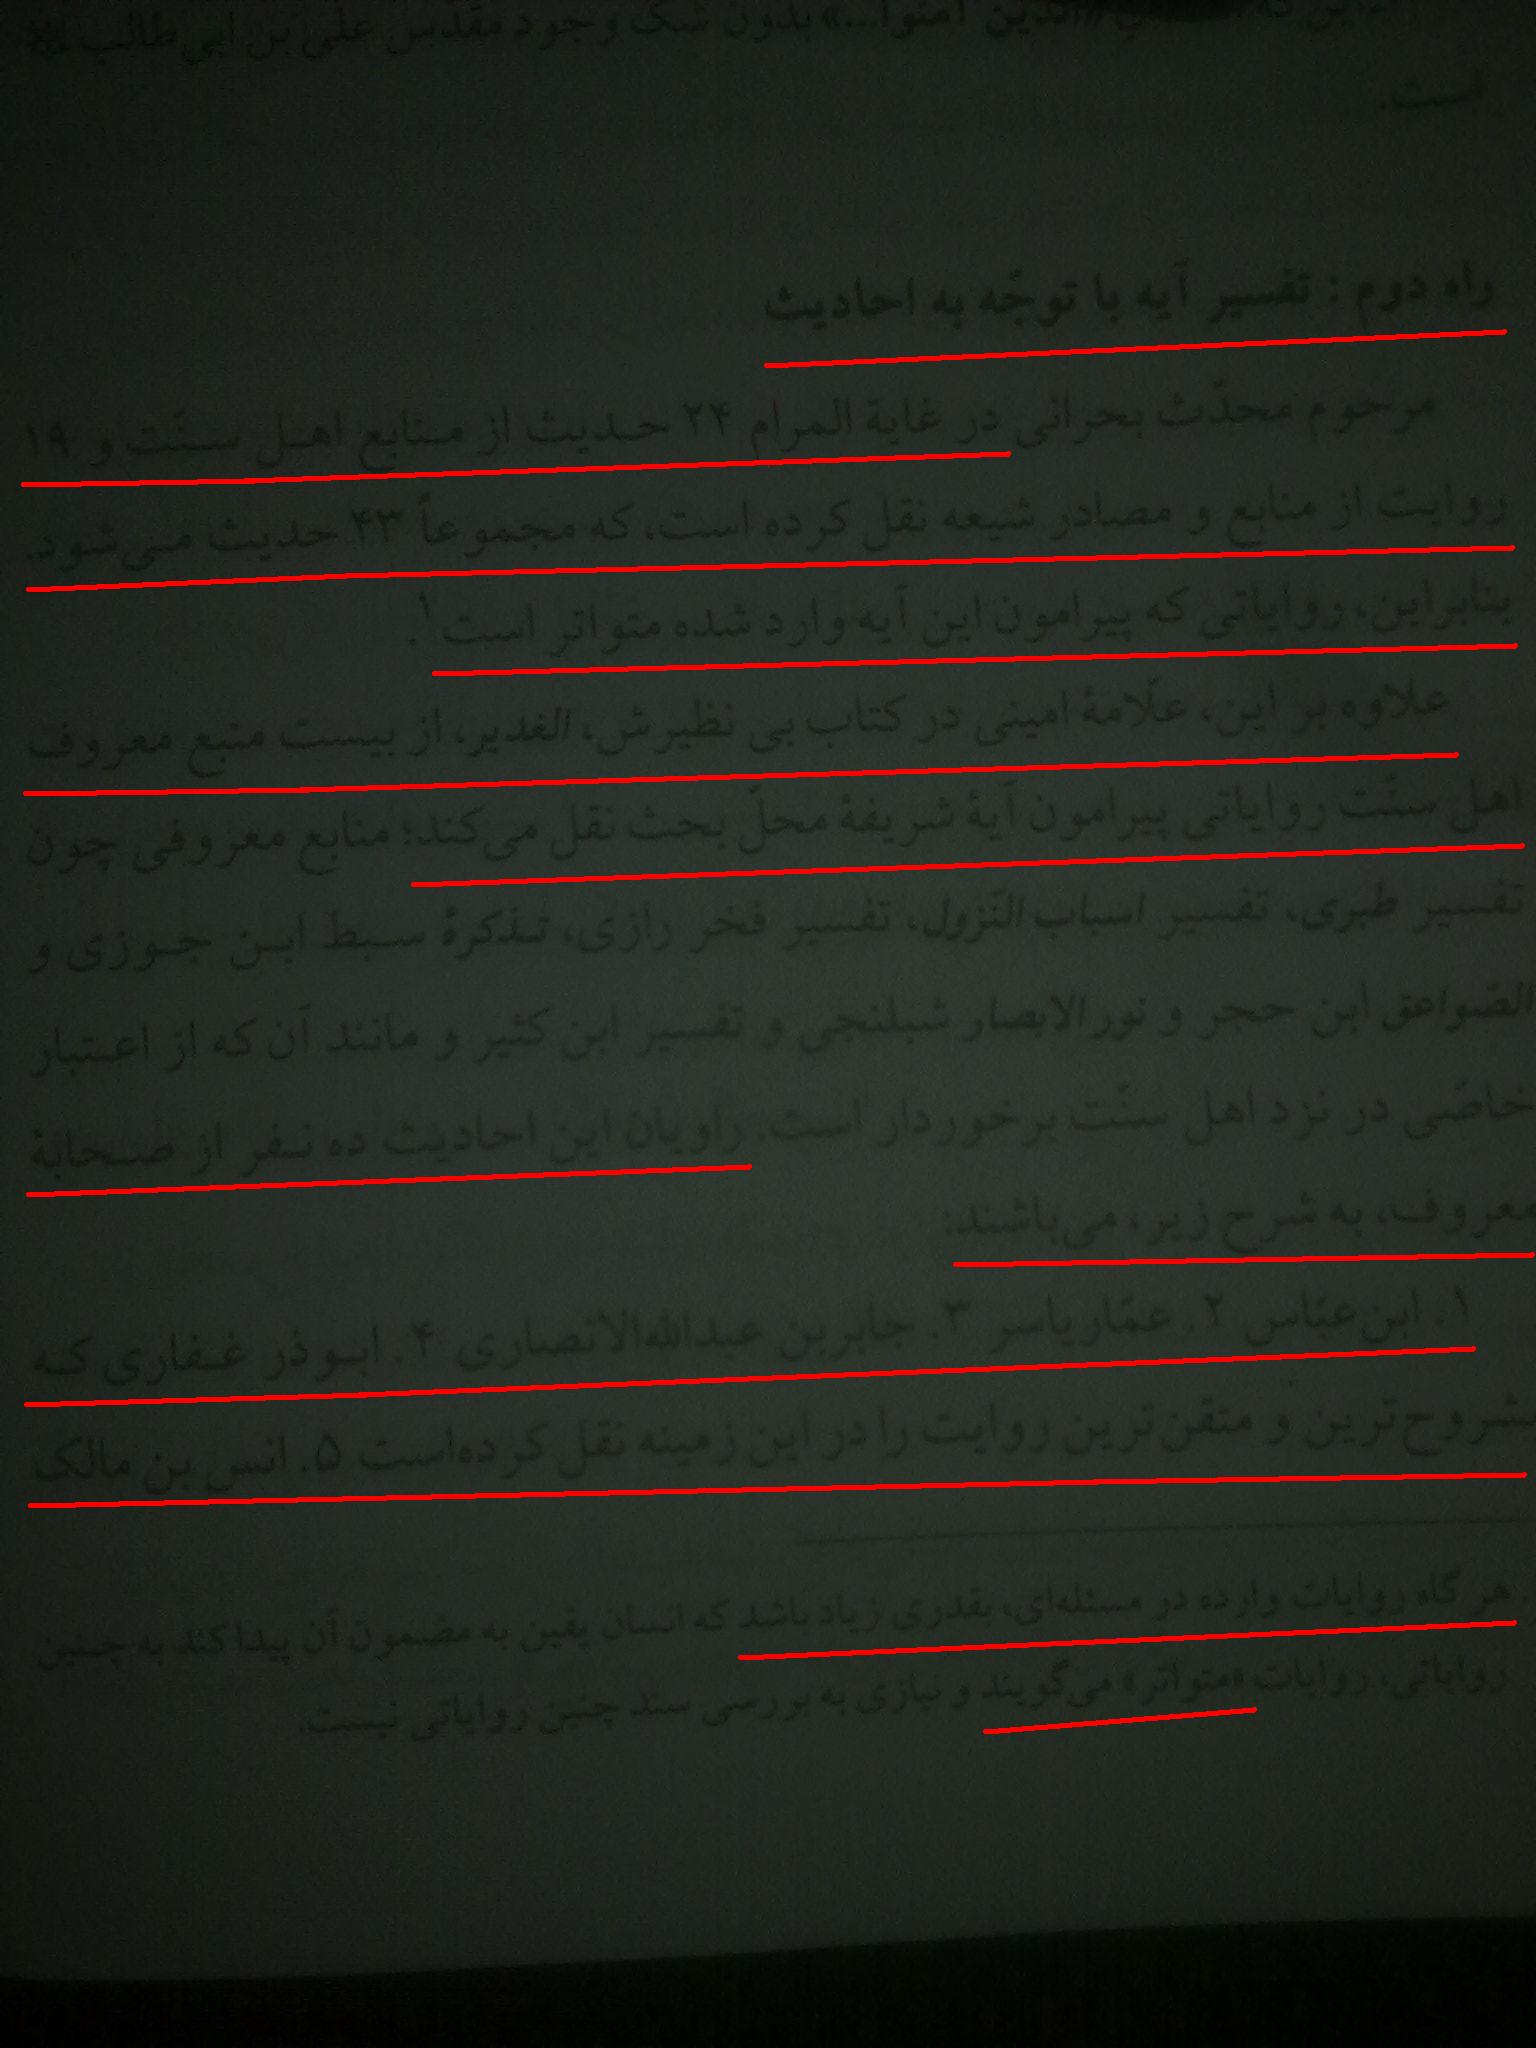 «الذین آمنوا...» بدون شک وجود مقدّس علی بن ابی‌طالب
است.
راه دوم : تفسیر آیه با توجّه به احادیث
مرحوم محدّث بحرانی در غایة المرام ۲۴ حدیث از منابع اهل سنّت و ۱۹
روایت از منابع و مصادر شیعه نقل کرده است، که مجموعاً ۴۳ حدیث می‌شود.
بنابراین، روایاتی که پیرامون این آیه وارد شده متواتر است۱.
علاوه بر این، علّامهٔ امینی در کتاب بی نظیرش، الغدیر، از بیست منبع معروف
اهل سنّت روایاتی پیرامون آیهٔ شریفهٔ محلّ بحث نقل می‌کند؛ منابع معروفی چون
تفسیر طبری، تفسیر اسباب النّزول، تفسیر فخر رازی، تذکرهٔ سبط ابن جوزی و
الصّواعق ابن حجر و نورالابصار شبلنجی و تفسیر ابن کثیر و مانند آن که از اعتبار
خاصّی در نزد اهل سنّت برخوردار است. راویان این احادیث ده نفر از صحابهٔ
معروف، به شرح زیر، می‌باشند:
۱. ابن‌عبّاس ۲. عمّاریاسر ۳. جابربن عبدالله‌الانصاری ۴. ابوذر غفاری که
مشروح‌ترین و متقن‌ترین روایت را در این زمینه نقل کرده‌است ۵. انس بن مالک
هر گاه روایات وارده در مسئله‌ای، بقدری زیاد باشد که انسان یقین به مضمون آن پیدا کند به چنین
روایاتی، روایات «متواتر» می‌گویند و نیازی به بررسی سند چنین روایاتی نیست.